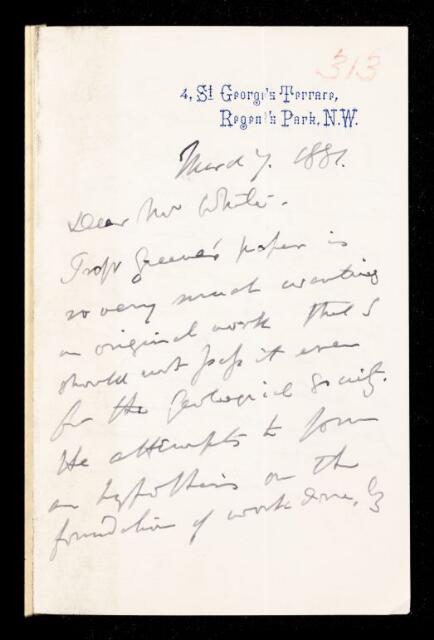 313
4, St. George's Terrace,
Regent's Park, N.W.
March 7. 1881.
Dear Mr White.
Profr Greene's paper is
so very much wanting
in original work that I
should not pass it even
for the Geological Society.
He attempts to form
an hypothesis on the
foundation of work done, by